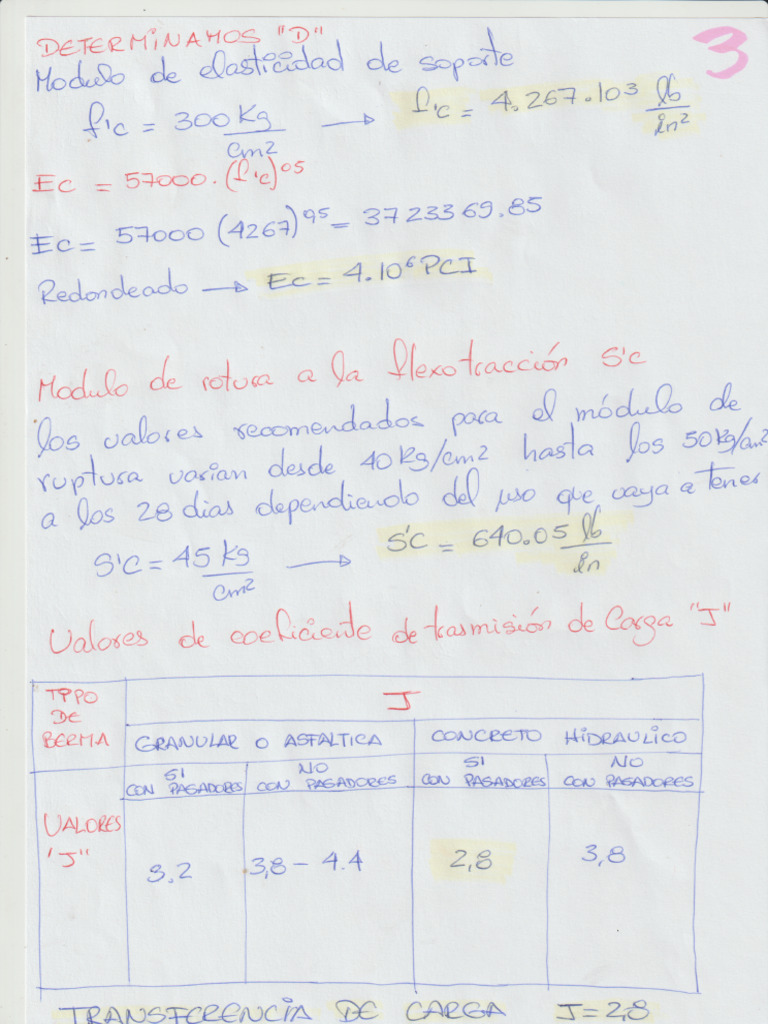 3
DETERMINAMOS "D"
Modulo de elasticidad de soporte
f'c = 300 Kg/cm2 → f'c = 4.267.103 lb/in2
Ec = 57000.(f'c)05
Ec = 57000 (4267)95 = 3723369.85
Redondeado → Ec = 4.10⁶ PCI
Modulo de rotura a la flexotracción S'c
los valores recomendados para el módulo de
ruptura varian desde 40 Kg/cm2 hasta los 50 Kg/cm2
a los 28 dias dependiendo del uso que vaya a tener
S'C = 45 Kg/cm2 → S'C = 640.05 lb/in
Valores de coeficiente de trasmisión de Carga "J"
TIPO DE BERMA
J
GRANULAR O ASFALTICA CONCRETO HIDRAULICO
SI CON PASADORES NO CON PASADORES SI CON PASADORES NO CON PASADORES
VALORES "J"
3.2 3,8 – 4.4 2,8 3,8
TRANSFERENCIA DE CARGA J=2,8